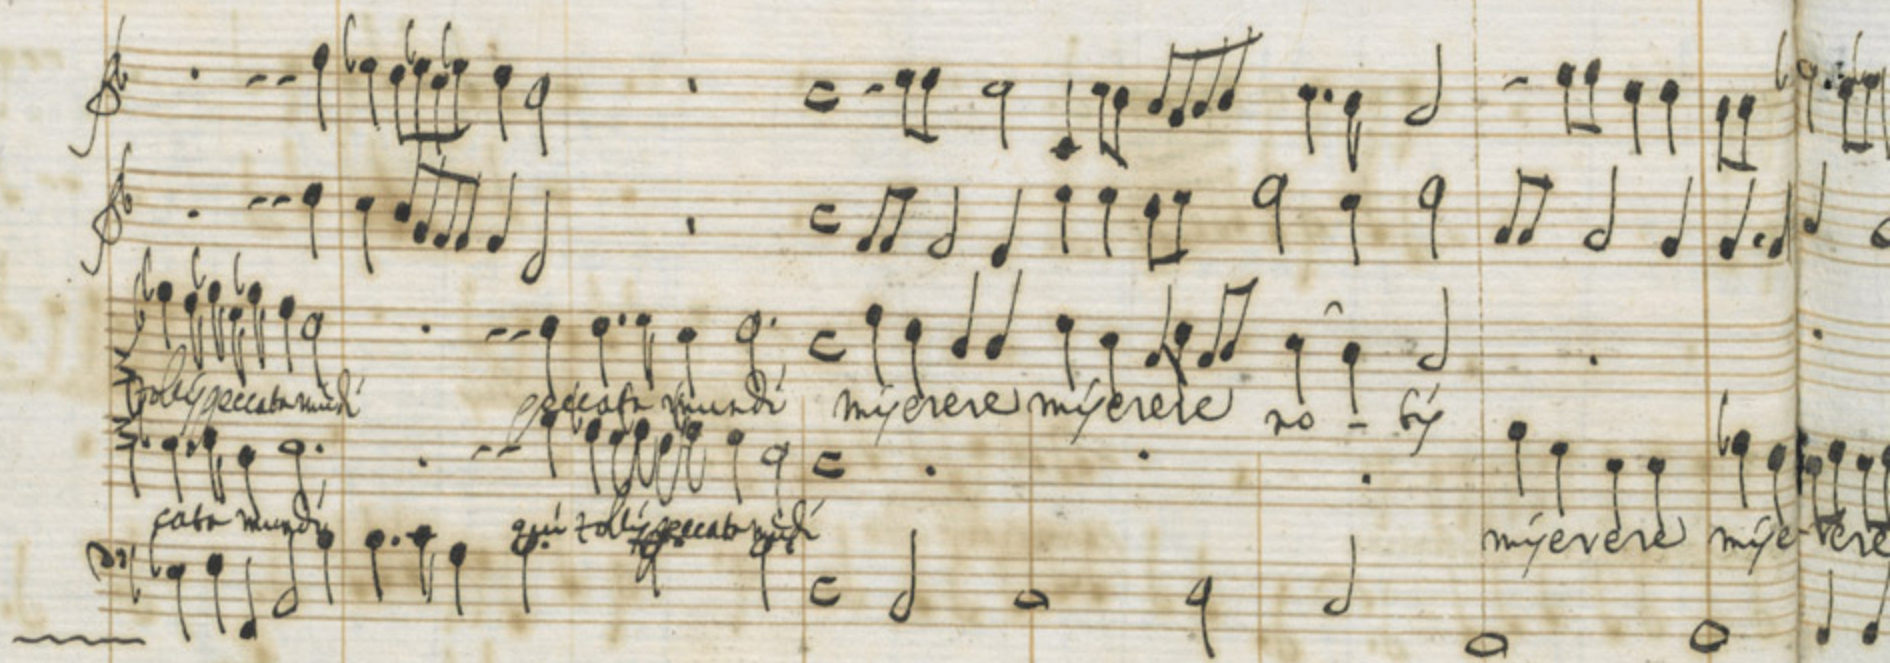 tollis peccata mundi peccata mundi miserere miserere no - bis
cata mundi qui tollis peccata mundi miserere miserere